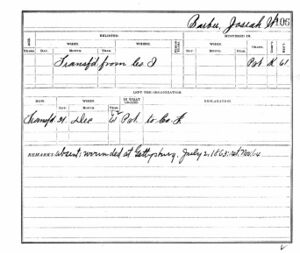 Barber, Josiah W 106
ENLISTED MUSTERED IN
AGE. WHEN. WHERE. WHEN. GRADE. CO. REG'T.
YEARS DAY MONTH YEAR DAY MONTH YEAR
Transf'd from Co I Pvt K 61
LEFT THE ORGANIZATION
HOW. WHEN. IN WHAT GRADE. EXPLANATION.
DAY MONTH YEAR
Transfd 24 Dec Pvt to Co
REMARKS: absent; wounded at Gettysburg, July 2, 1863;